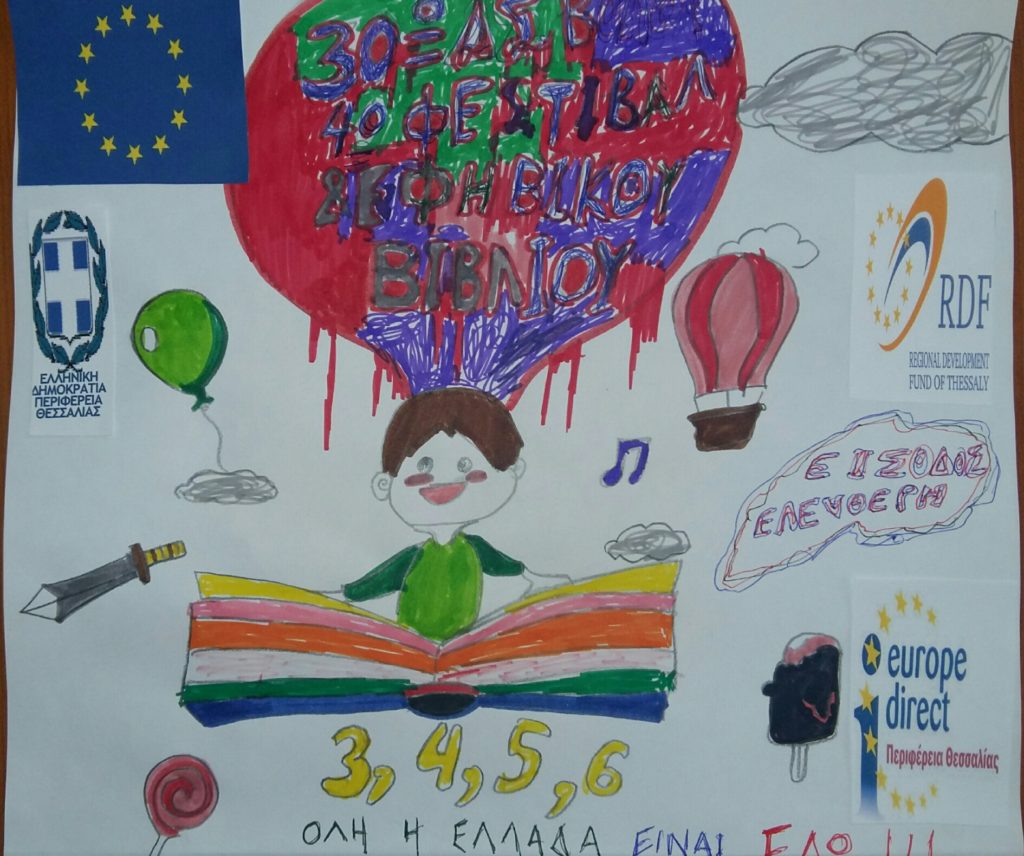 4Ο ΦΕΣΤΙΒΑΛ
& ΕΦΗΒΙΚΟΥ
ΒΙΒΛΙΟΥ
ΕΛΛΗΝΙΚΗ
ΔΗΜΟΚΡΑΤΙΑ
ΠΕΡΙΦΕΡΕΙΑ
ΘΕΣΣΑΛΙΑΣ
RDF
REGIONAL DEVELOPMENT
FUND OF THESSALY
ΕΙΣΟΔΟΣ
ΕΛΕΥΘΕΡΗ
europe
direct
Περιφέρεια Θεσσαλίας
3, 4, 5, 6
ΟΛΗ Η ΕΛΛΑΔΑ ΕΙΝΑΙ ΕΔΩ !!!